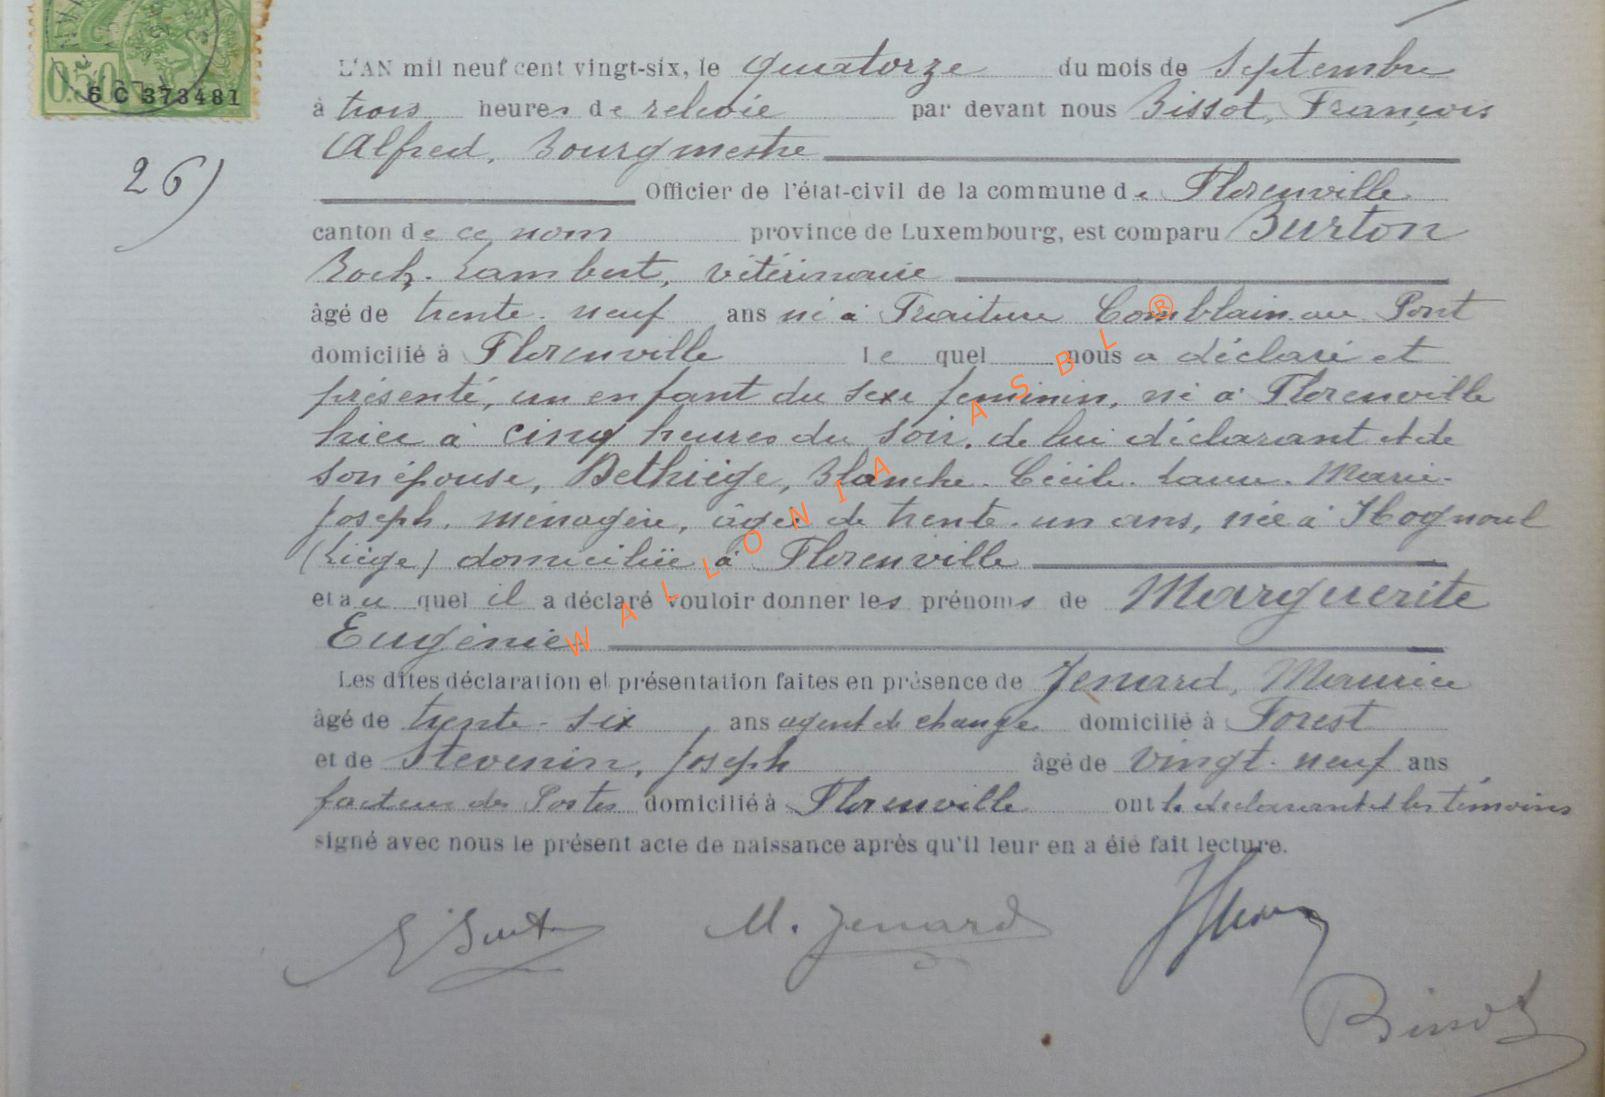 0.50
6 C 373481
26)
L'AN mil neuf cent vingt-six, le quatorze du mois de Septembre
à trois heures de relevée par devant nous Bissot, François
Alfred, Bourgmestre
Officier de l'état-civil de la commune de Florenville
canton de ce nom province de Luxembourg, est comparu Burton
Roch. Lambert, vétérinaire
âgé de trente-neuf ans né à Traiture Comblain-au-Pont
domicilié à Florenville lequel nous a déclaré et
présenté, un enfant du sexe feminin, né à Florenville
hier à cinq heures du soir, de lui déclarant et de
son épouse, Dethiège, Blanche. Cécile. Laure. Marie-
Joseph, ménagère, âgée de trente-un ans, née à Hognoul
(Liège) domiciliée à Florenville
et au quel il a déclaré vouloir donner les prénoms de Marguerite
Eugénie
Les dites déclaration et présentation faites en présence de Jenard, Maurice
âgé de trente-six ans agent de change domicilié à Forest
et de Stevenin, Joseph âgé de vingt-neuf ans
facteur des Postes domicilié à Florenville ont le déclarant et les témoins
signé avec nous le présent acte de naissance après qu'il leur en a été fait lecture.
M. Jenard
Bissot
WALLONIA ASBL ®